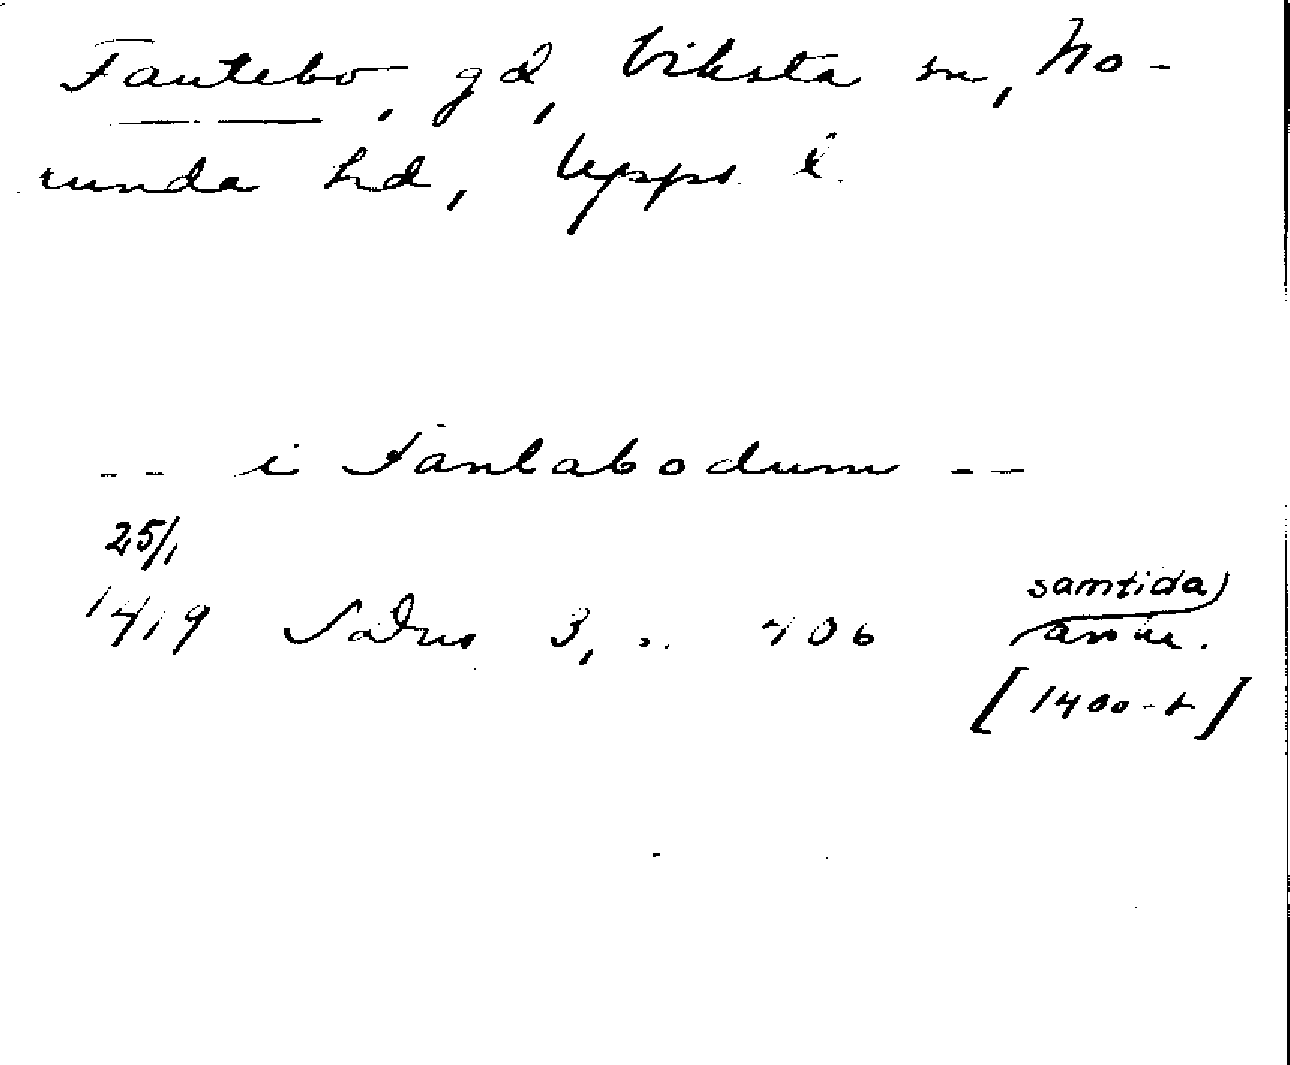 Fantebo, gd, Viksta sn, No-
runda hd, Upps l.
-- i Fantabodum --
25/1
1419 SDns 3, s. 406
samtida
[1400-t]